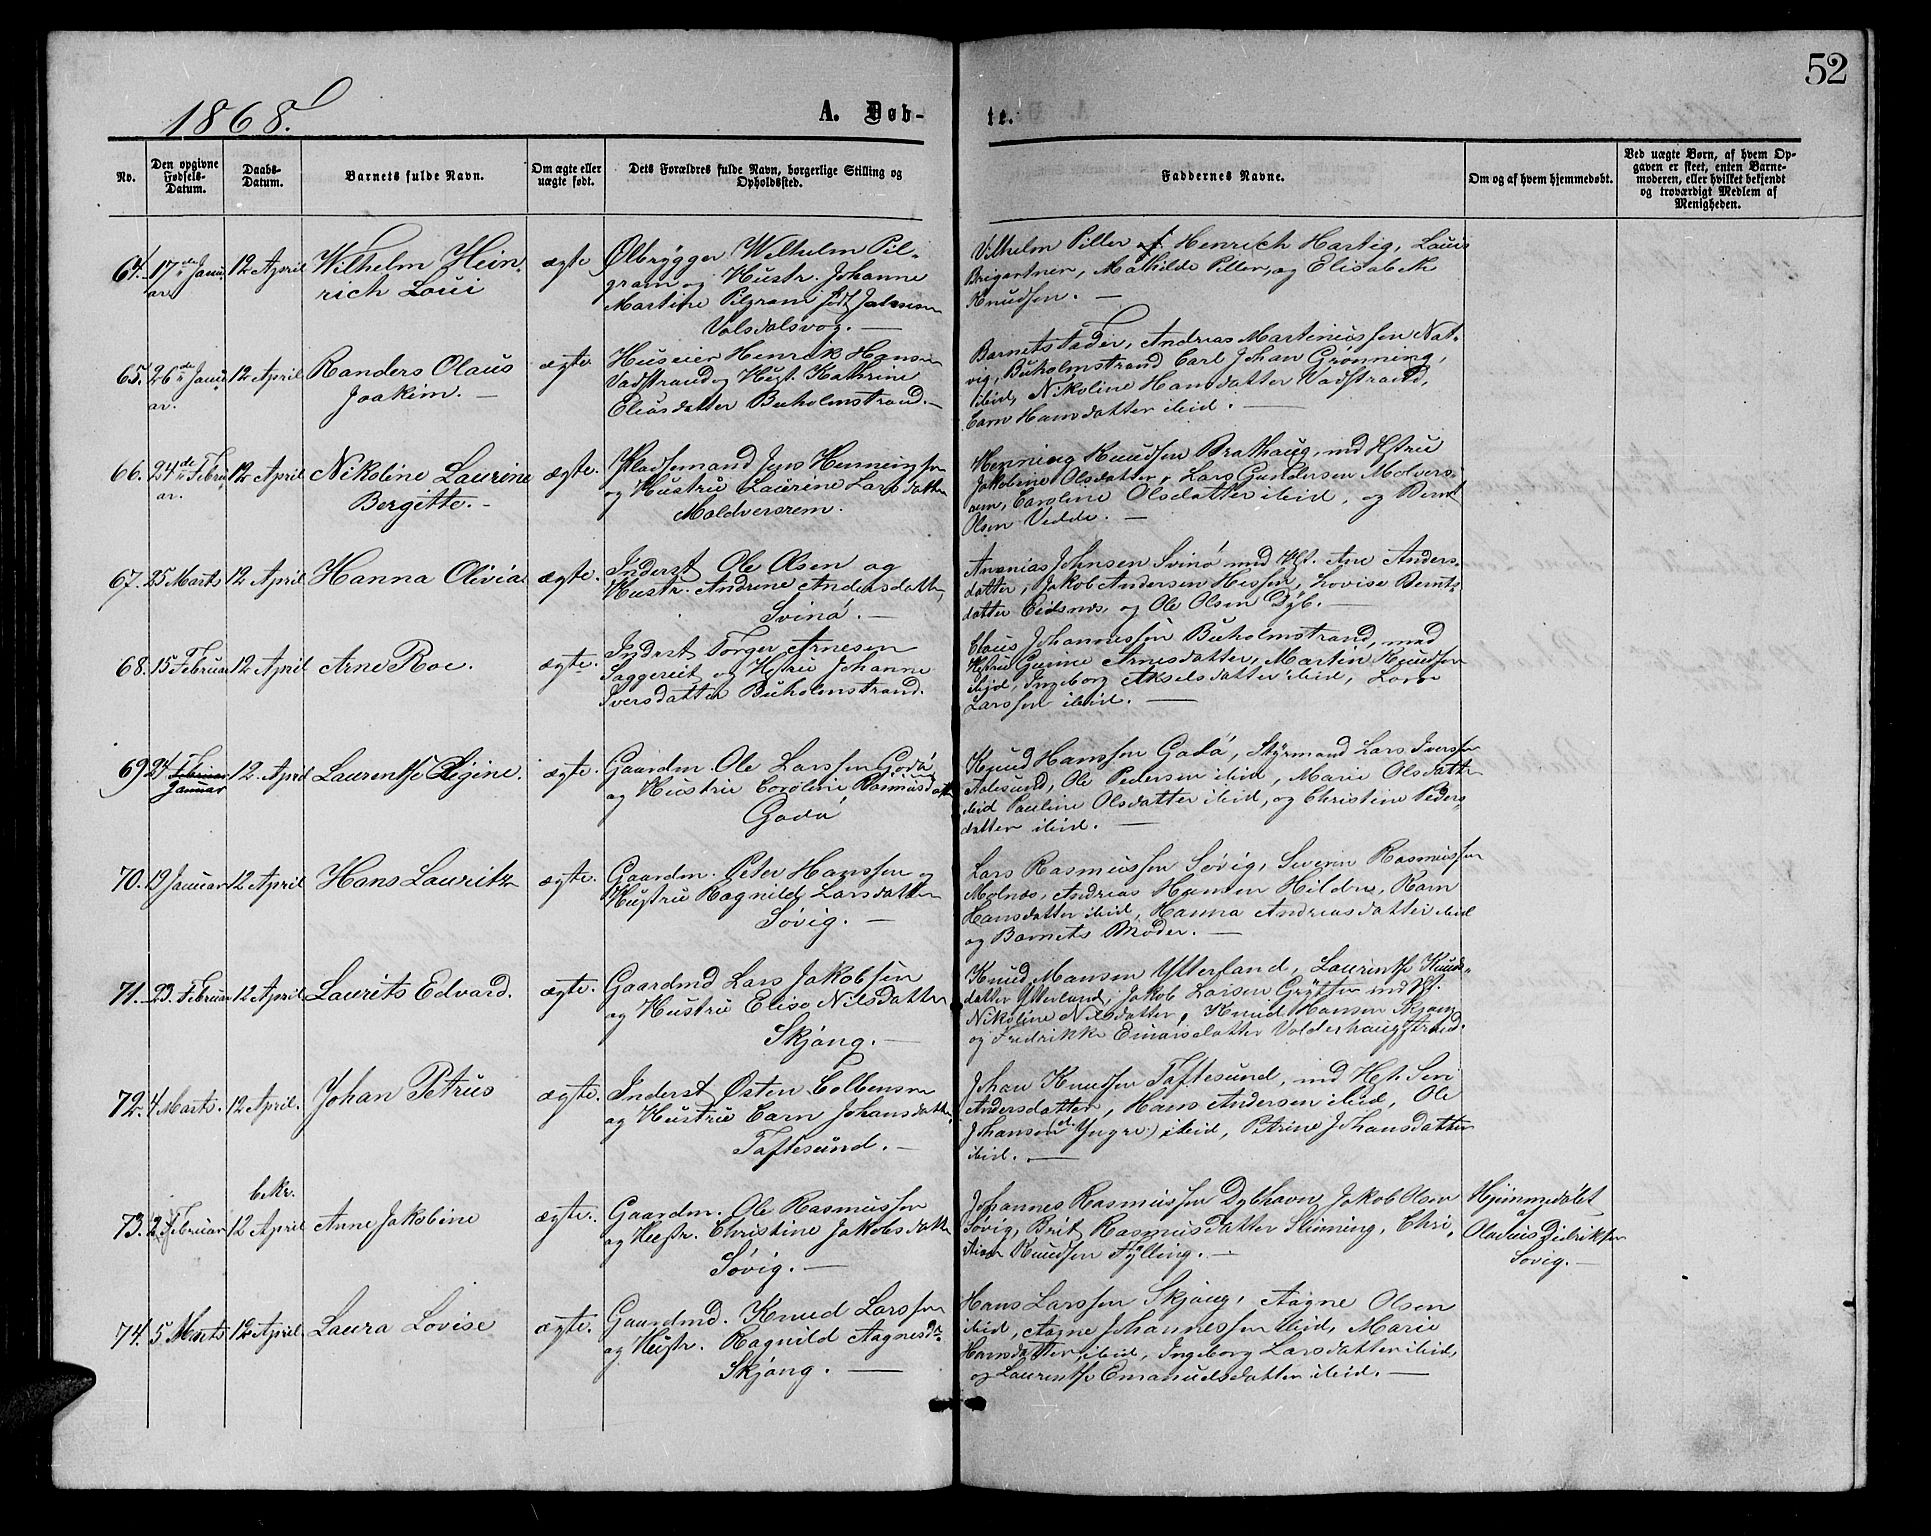 52
1868.
A. Døb-
te.
No.
Den opgivne
Fødsels-
Datum.
Daabs-
Datum.
Barnets fulde Navn.
Om ægte eller
uægte født.
Dets Forældres fulde Navn, borgerlige Stilling og
Opholdssted.
Faddernes Navne.
Om og af hvem hjemmedøbt.
Ved uægte Børn, af hvem Op-
gaven er skeet, enten Barne-
moderen, eller hvilket bekjendt
og troværdigt Medlem af
Menigheden.
64. 17de Janu- 12 April Wilhelm Hein- ægte Ølbrygger Wilhelm Pil-
ar rich Loui gram og Hustr. Johanne
Martine Pilgram født
Volsdalsvog. —
Vilhelm Piller Henrich Hartig, Louis
Brigartner, Mathilde Piller, og Elisabeth
Knudsen. —
65. 26de Janu- 12 April Randers Olaus ægte. Huseier Henrik Hansen
ar. Joakim. — Vadstrand og Hust. Kathrine
Eliasdatter Buholmstrand. —
Barnets Fader, Andreas Martinussen Nat-
vig, Buholmstrand Carl Johan Grønning,
ibid, Nikoline Hansdatter Vadstrand,
Carn Hansdatter ibid. —
66. 24de Febru- 12 April Nikoline Laurine ægte. Pladsemand Jens Henningsen
ar. Bergitte. - og Hustru Laurine Larsdatter
Moldversrem.
Henning Knudsen Brathaug, md Hstru
Jakobine Olsdatter, Lars Gundersen Molvers-
rem, Caroline Olsdatter ibid, og Bernt
Olsen Vedde. —
67. 25 Marts 12 April Hanna Olivia ægte. Inderst Ole Olsen og
Hustr. Andrine Andersdatter,
Svinø. —
Ananias Johnsen Svinø med Hst. Ane Anders-
datter, Jakob Andersen Hessen, Lovise Bernts-
datter Eidsnes, og Ole Olsen Dyb. —
68. 15 Februar 12 April Arne Roe. ægte. Inderst Torger Arnesen
Saggereit og Hstru Johanne
Iversdatter Buholmstrand.
Claus Johannessen Buholmstrand, med
Hstru Gurine Arnesdatter, Martin Knudsen
ibid, Ingeborg Akselsdatter ibid,
Larssen ibid. —
69 24 Februar 12 April Laurentse Regine. ægte. Gaardm. Ole Larssen Godø
Januar og Hustru Caroline Rasmusdatt
Godø
Knud Hanssen Godø, Styrmand Lars Iversen
Aalesund, Ole Pedersen ibid, Marie Olsdatter
ibid Pauline Olsdatter ibid, og Christine Peders-
datter ibid. —
70. 19 Januar 12 April Hans Lauritz ægte. Gaardm. Peter Hanssen og
Hustru Ragnild Larsdatter
Søvig. —
Lars Rasmussen Søvig, Severin Rasmussen
Molnes, Andreas Hansen Hildre, Karn
Hansdatter ibid, Hanna Andreasdatter ibid
og Barnets Moder. —
71. 23. Februar 12 April Laurits Edvard. ægte. Gaardmd Lars Jakobsen
og Hustru Elise Nilsdatter
Skjong. —
Knud Hansen Ytterland, Laurentse Knuds-
datter Ytterland, Jakob Larsen Grytsen md Hst.
Nikoline Nilsdatter, Knud Hansen Skjong
og Fredrikke Einarsdatter Volderhaugstrand.
72. 4 Marts. 12 April. Johan Petrus ægte. Inderst Østen Colbensen
og Hustru Carn Johansdatter,
Taftesund. —
Johan Knudsen Taftesund, md Hst. Siri
Andersdatter, Hans Andersen ibid, Ole
Johansen (d. Yngre) ibid, Petrine Johansdatter
ibid. —
bekr.
73. 2 Februar 12 April Anne Jakobine ægte. Gaardm. Ole Rasmussen
og Hustr. Christine Jakobsdatter
Søvig. —
Johannes Rasmussen Dybhavn, Jakob Olsen
Søvig, Brit Rasmusdatter Slinning, Chri-
stian Knudsen Fylling. —
Hjemmedøbt
af
Olaus Didriksen
Søvig. —
74. 5 Marts 12 April. Laura Lovise ægte. Gaardmd. Knud Larssen
og Hustr. Ragnild Aagesdtr
Skjong. —
Hans Larssen Skjong, Aagne Olsen
ibid, Aagne Johannessen ibid, Marie
Hansdatter, ibid, Ingeborg Larsdatter ibid,
og Laurentse Emanuelsdatter ibid. —